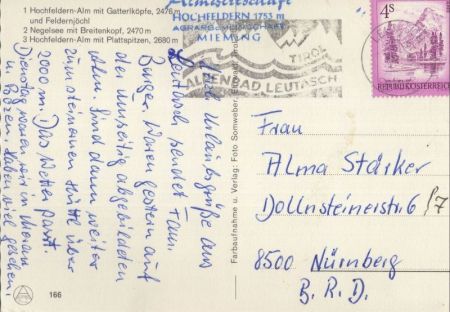 1 Hochfeldern-Alm mit Gatterlköpfe, 2476 m
und Feldernjöchl
2 Negelsee mit Breitenkopf, 2470 m
3 Hochfeldern-Alm mit Plattspitzen, 2680 m
HOCHFELDERN 1753 m
AGRARGEMEINSCHAFT
MIEMING
TIROL
ALPENBAD LEUTASCH
4 S
REPUBLIK ÖSTERREICH
Viele Urlaubsgrüße aus
sendet Fam.
Burger. Waren gestern auf
der umseitig abgebildeten
Alm. Sind dann weiter
zur steinernen Hütte über
2000 m. Das Wetter passt.
Dienstag waren wir in Meran
u. Bozen, haben viel gesehen.
166
Farbaufnahme u. Verlag: Foto Somweber,
Frau
Alma Stärker
Dollnsteinerstr 6
8500 Nürnberg
B.R.D.